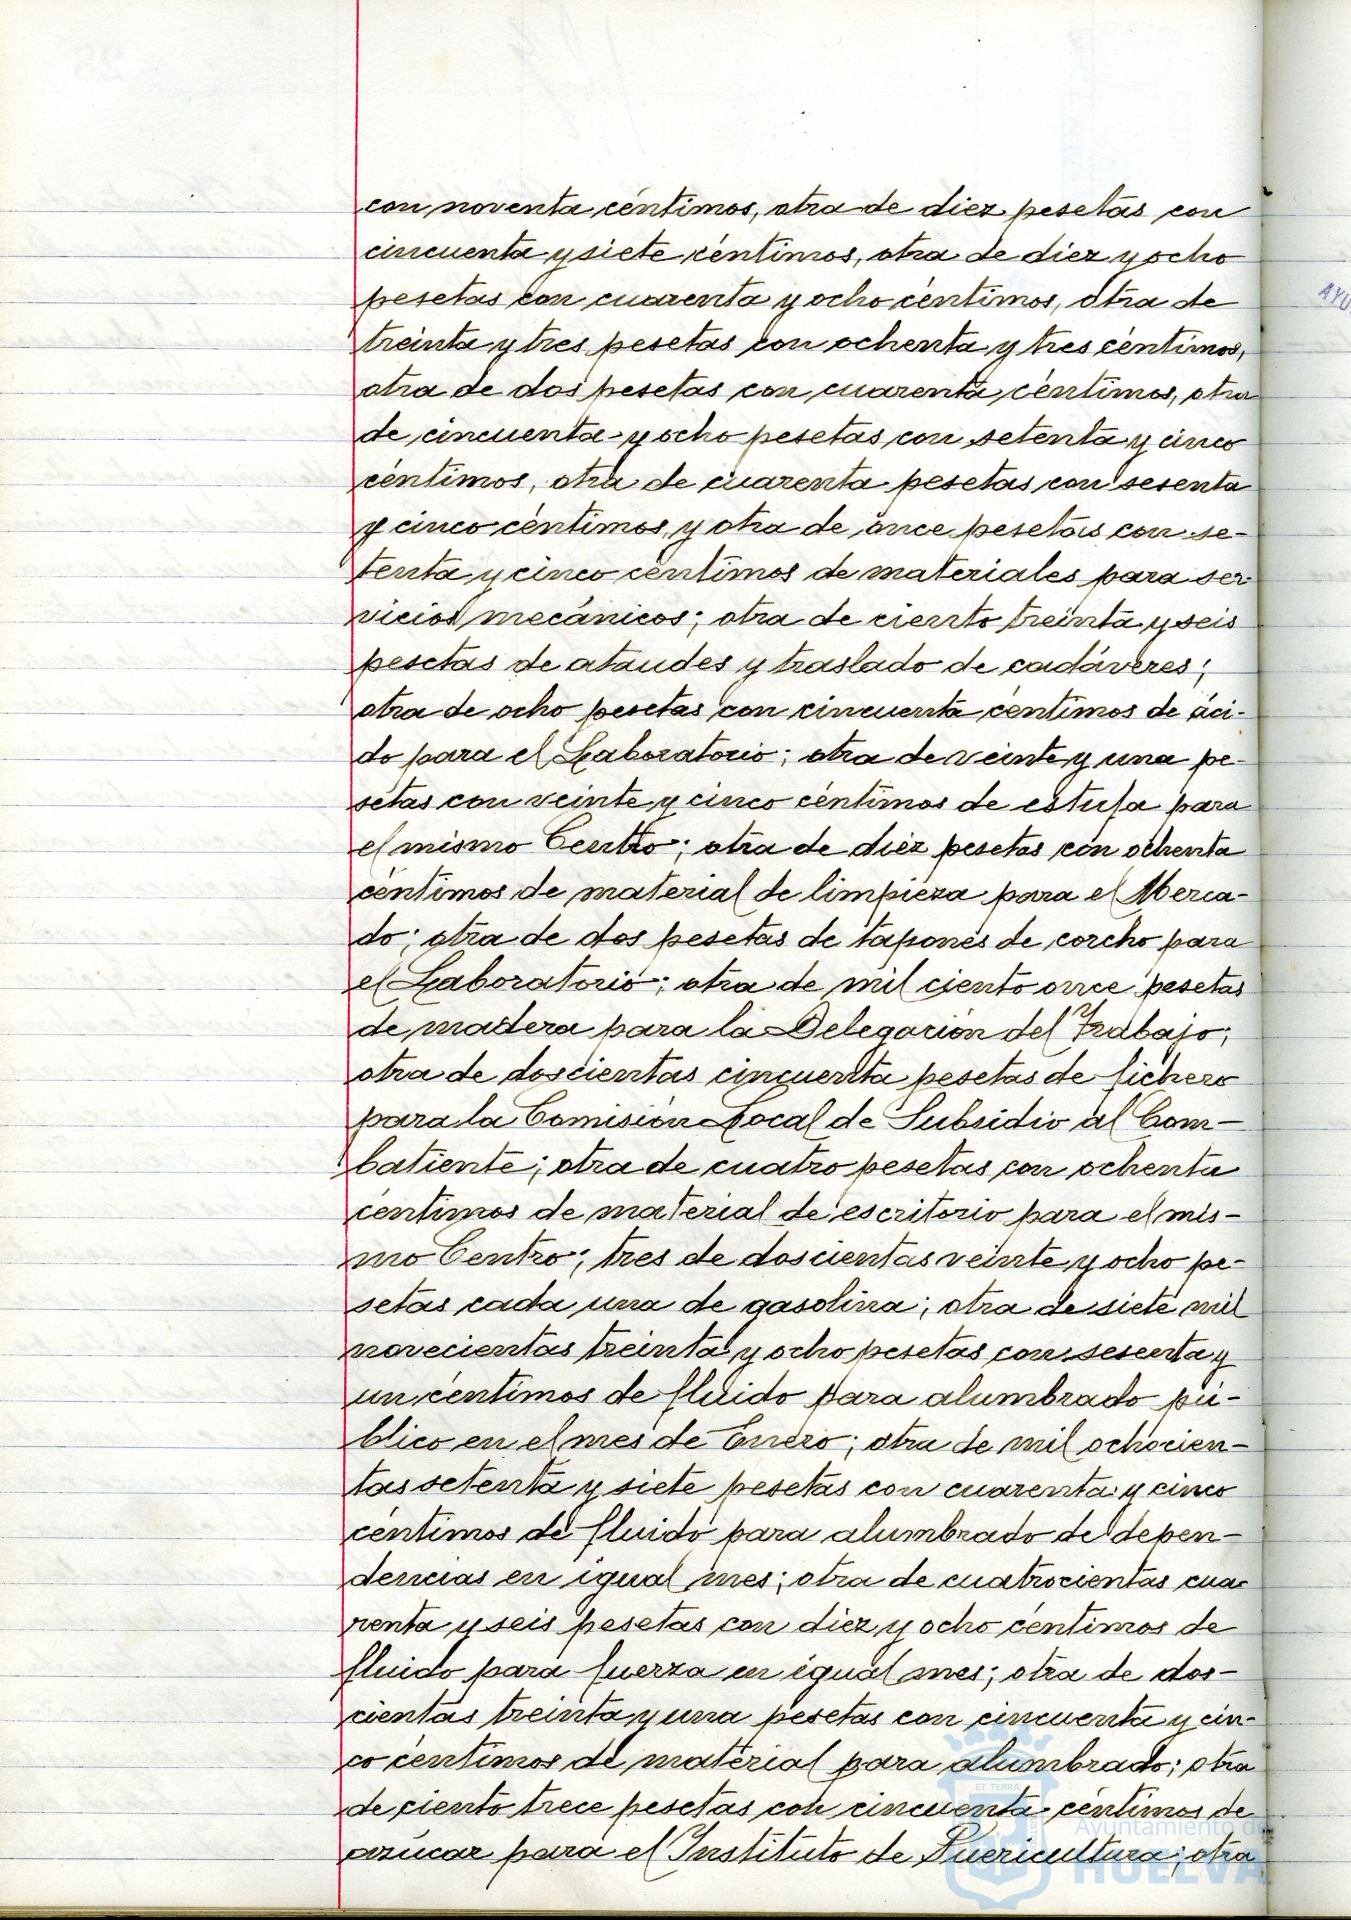 con noventa céntimos, otra de diez pesetas con
cincuenta y siete céntimos, otra de diez y ocho
pesetas con cuarenta y ocho céntimos, otra de
treinta y tres pesetas con ochenta y tres céntimos,
otra de dos pesetas con cuarenta céntimos, otra
de cincuenta y ocho pesetas con setenta y cinco
céntimos, otra de cuarenta pesetas con sesenta
y cinco céntimos, y otra de once pesetas con se-
tenta y cinco céntimos de materiales para ser-
vicios mecánicos; otra de ciento treinta y seis
pesetas de ataudes y traslado de cadáveres;
otra de ocho pesetas con cincuenta céntimos de áci-
do para el Laboratorio; otra de veinte y una pe-
setas con veinte y cinco céntimos de estufa para
el mismo Centro; otra de diez pesetas con ochenta
céntimos de material de limpieza para el Merca-
do; otra de dos pesetas de tapones de corcho para
el Laboratorio; otra de mil ciento once pesetas
de madera para la Delegación del Trabajo;
otra de doscientas cincuenta pesetas de fichero
para la Comisión Local de Subsidio al Com-
batiente; otra de cuatro pesetas con ochenta
céntimos de material de escritorio para el mis-
mo Centro; tres de doscientas veinte y ocho pe-
setas cada una de gasolina; otra de siete mil
novecientas treinta y ocho pesetas con sesenta y
un céntimos de fluido para alumbrado pú-
blico en el mes de Enero; otra de mil ochocien-
tas setenta y siete pesetas con cuarenta y cinco
céntimos de fluido para alumbrado de depen-
dencias en igual mes; otra de cuatrocientas cua-
renta y seis pesetas con diez y ocho céntimos de
fluido para fuerza en igual mes; otra de dos-
cientas treinta y una pesetas con cincuenta y cin-
co céntimos de material para alumbrado; otra
de ciento trece pesetas con cincuenta céntimos de
azúcar para el Instituto de Puericultura; otra
ET TERRÆ
Ayuntamiento de
HUELVA